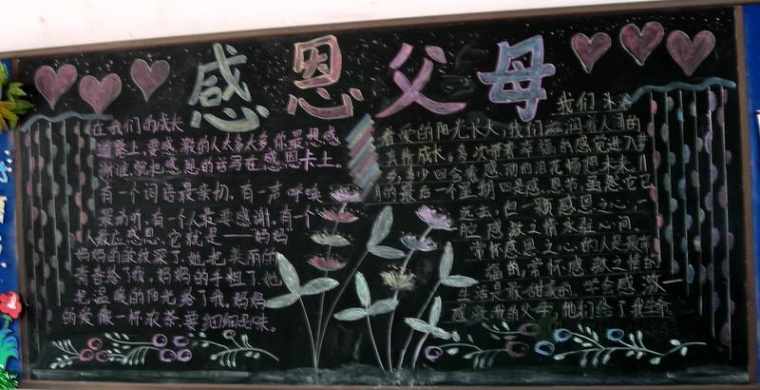 感恩父母
在我们的成长
道路上,要感激的人太多太多,你最想感
谢谁,就把感恩的话写在感恩卡上。
有一个词语最亲切,有一声呼唤
最动听,有一个人最要感谢,有一个
人最应感恩,它就是——妈妈
妈妈的皱纹深了,她把美丽的
青春给了我,妈妈的手粗了,她
把温暖的阳光给了我,妈妈
的爱像一杯浓茶,要细细品味。
我们沐
着爱的阳光长大,我们滋润着人间的
真情成长。多次带着幸福的感觉进入梦
多少回含着感动的泪花畅想未来。11
月的最后一个星期四是感恩节,虽然它已
远去,但一颗感恩之心,一
腔感激之情永驻心间。
常怀感恩之心的人是最幸
福的,常怀感激之情的
生活是最甜美的。学会感激
感激我的父母,他们给了我生命